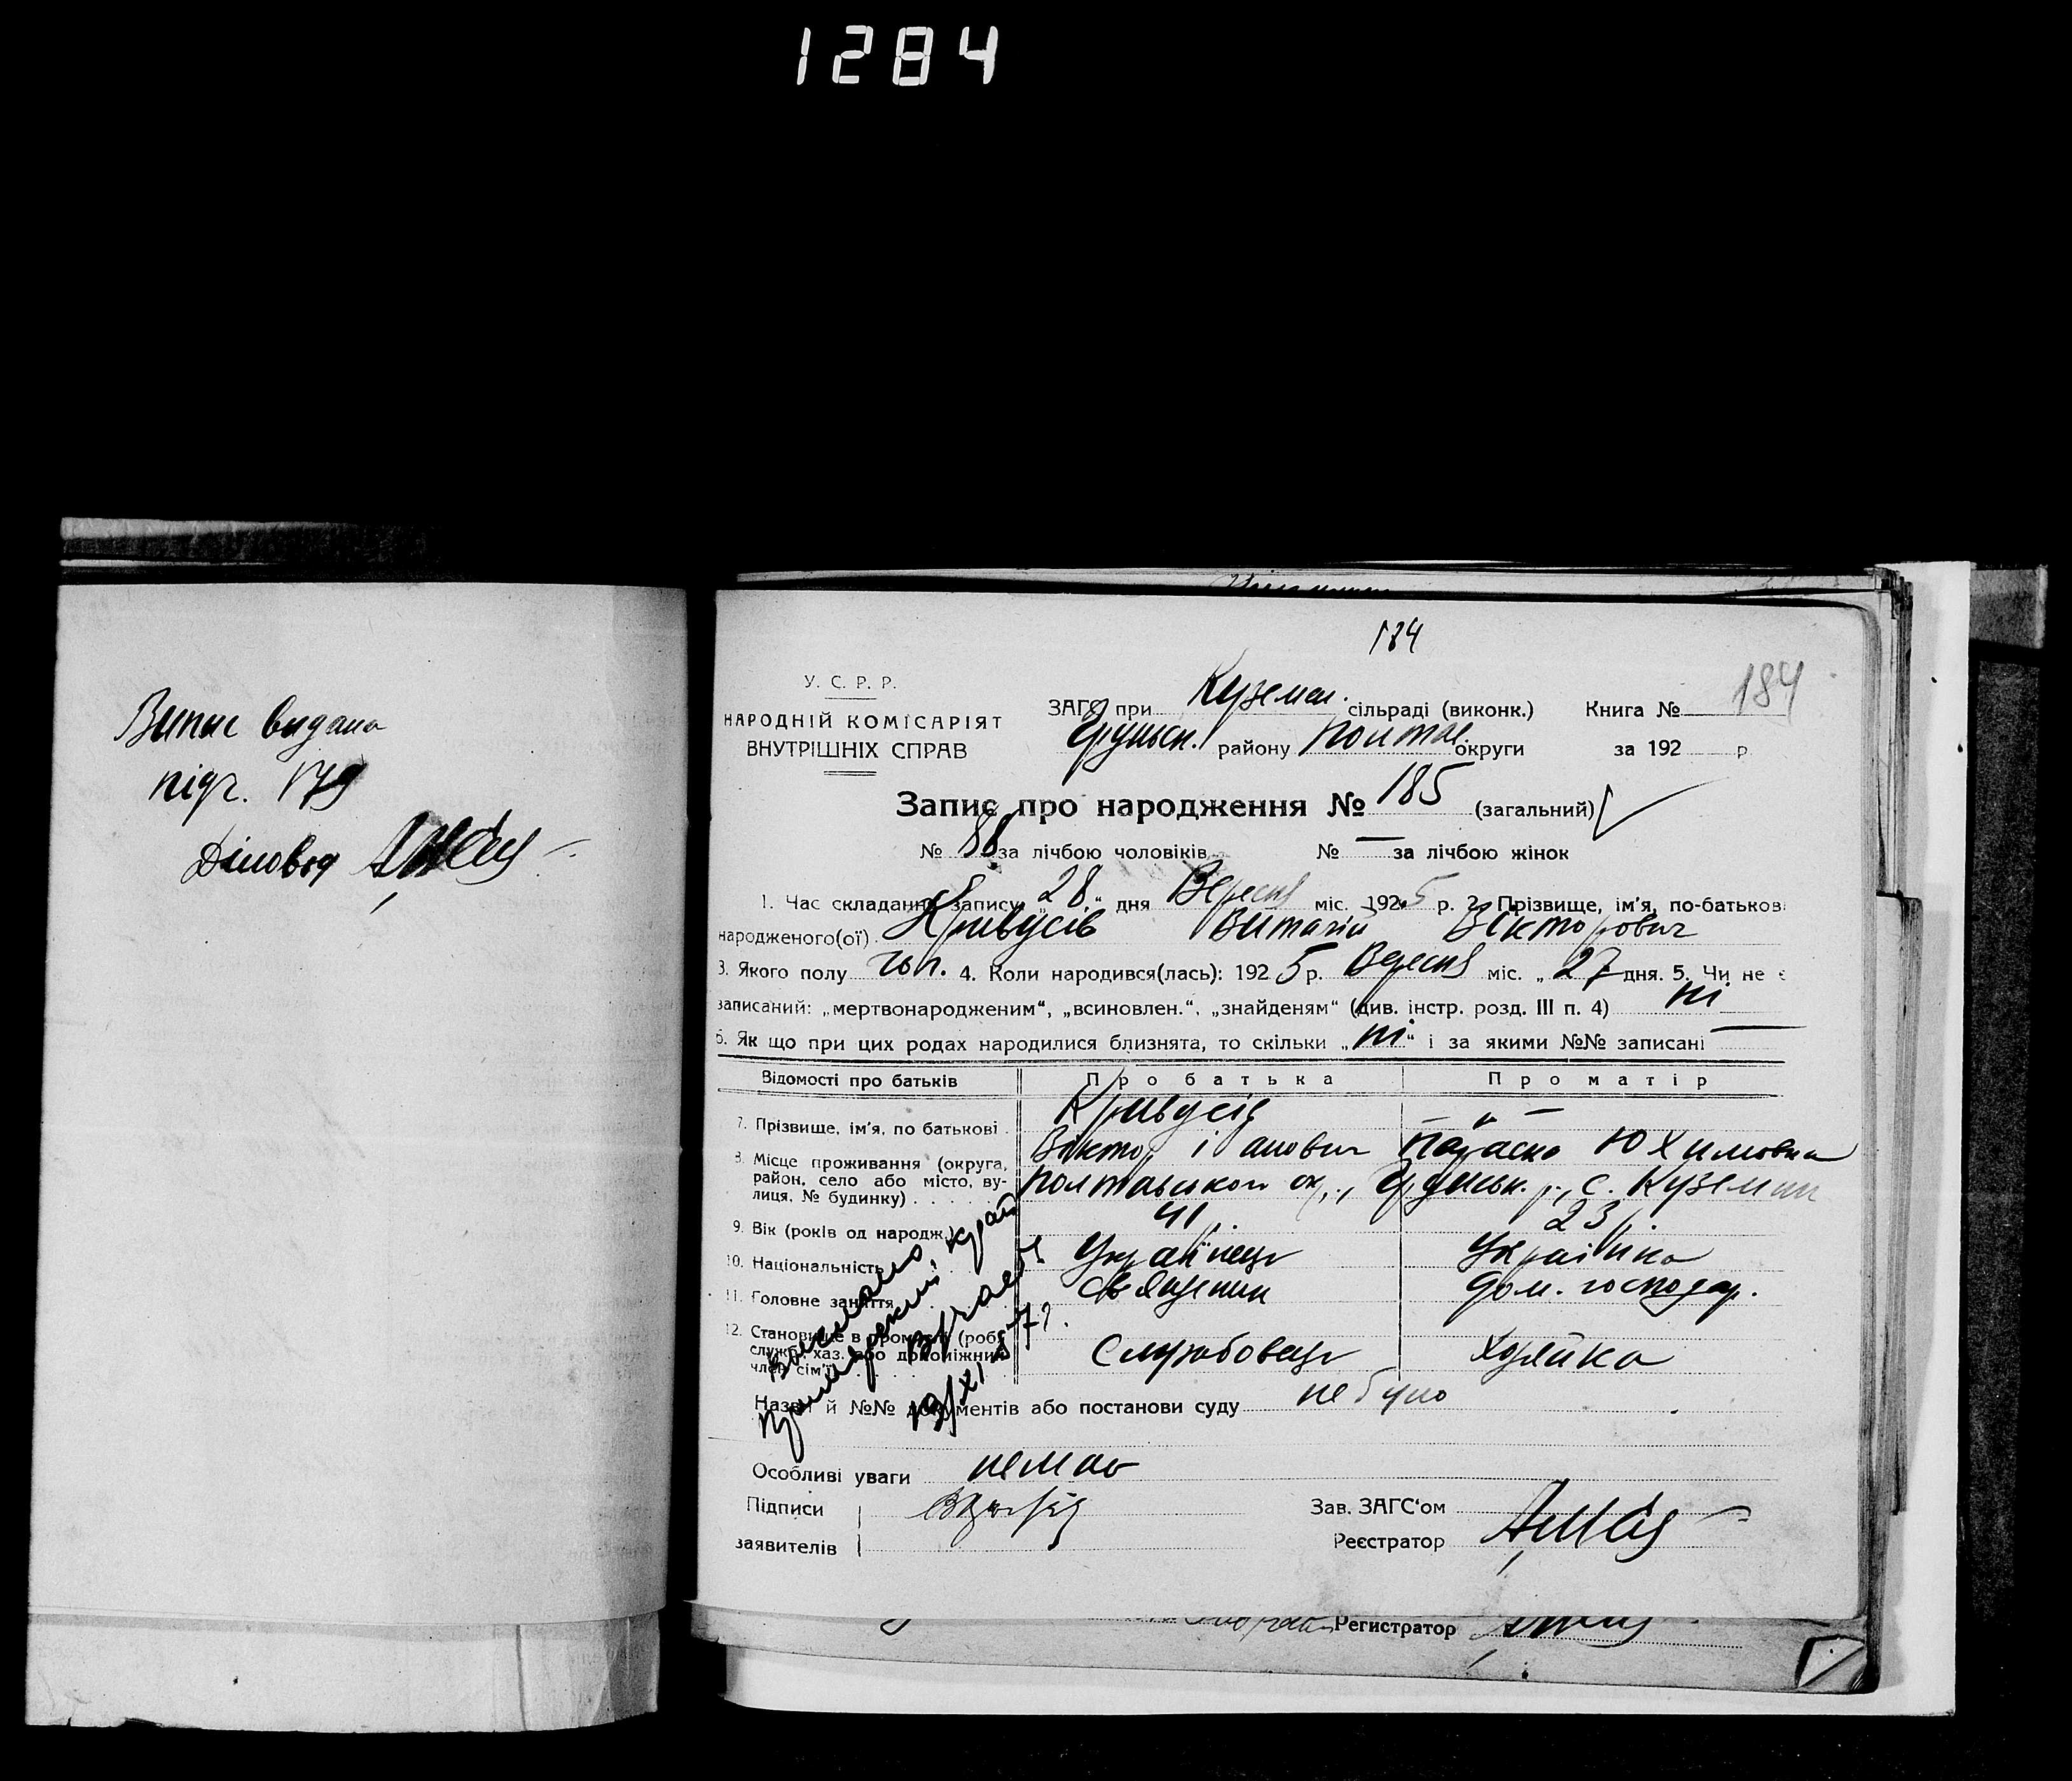 1284
Випис видана
підч. 179
Діловод
184
184
У. С. Р. Р.
НАРОДНІЙ КОМІСАРІЯТ
ВНУТРІШНІХ СПРАВ
ЗАГС при Куземен. сільраді (виконк.) Книга №
Грунськ. району Полтав. округи за 192 р
Запис про народження № 185 (загальний)
№ 88 за лічбою чоловіків № — за лічбою жінок
1. Час складання запису „28“ дня Вересня міс. 1925 р. 2. Прізвище, ім'я, по-батькові
народженого(ої) Кривусів Виталій Вікторович
3. Якого полу чол. 4. Коли народився(лась): 1925 р. Вересня міс. „27 дня. 5. Чи не є
записаний: „мертвонародженим“, „всиновлен.“, „знайденям“ (див. інстр. розд. III п. 4) ні
6. Як що при цих родах народилися близнята, то скільки „ні“ і за якими №№ записані —
Відомості про батьків Про батька Про матір
7. Прізвище, ім'я, по батькові Кривусів — „ —
Віктор Іванович Параска Юхимовна
8. Місце проживання (округа,
район, село або місто, ву-
лиця, № будинку) Полтавської ок., Грунськ. р., с. Куземин
9. Вік (років од народж.) 41 р. 23 р.
10. Національність Українець Українка
11. Головне заняття Священик дом. господар.
12. Становище в промислі (роб.
служб. хаз. або допоміжний
член сім'ї) Службовець Хозяйка
Приморский край
19/XI
Назви й №№ документів або постанови суду не було
Особливі уваги немає
Підписи Зав. ЗАГС'ом
заявителів Реєстратор
Регистратор